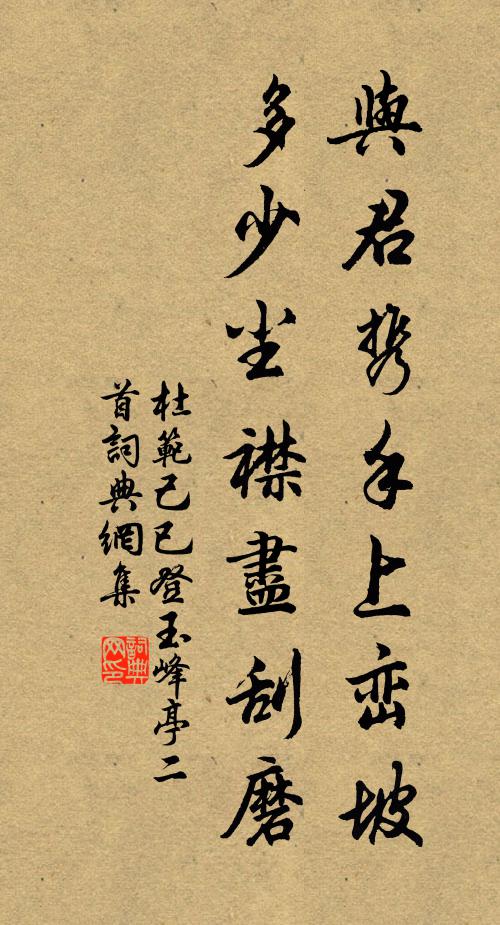 與君携手上峦坡
多少尘襟盡刮磨
杜範己巳登玉峰亭二
首詞典網集
詞典
网印